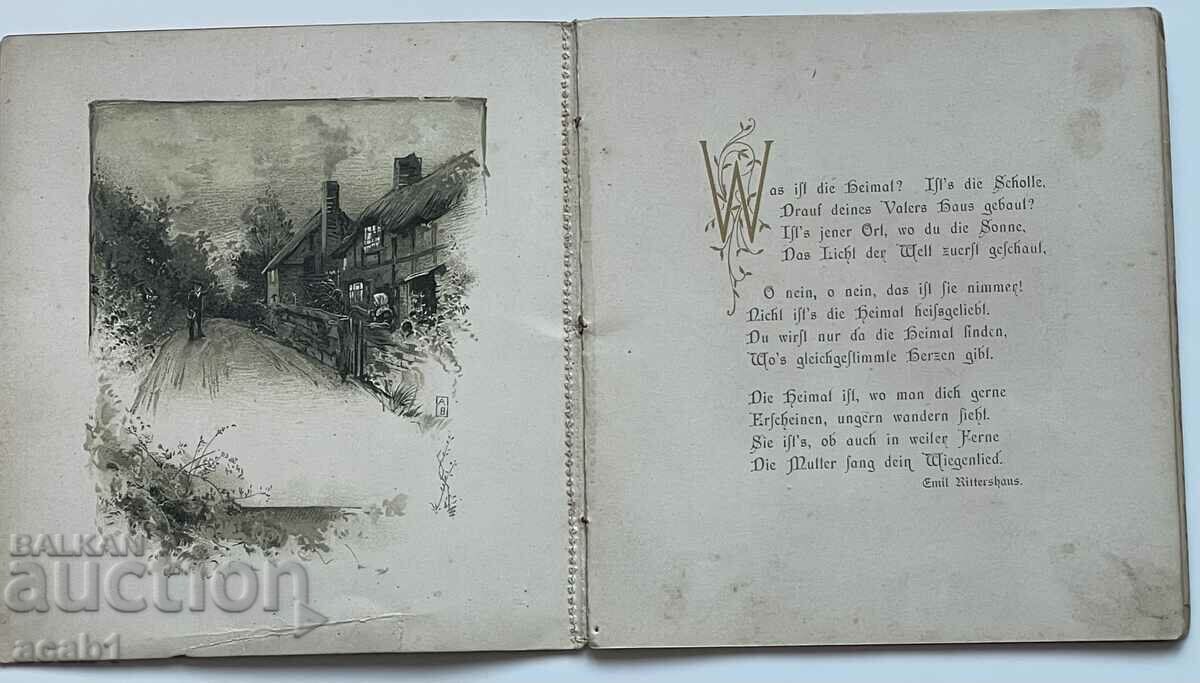 A
B
BALKAN
auction
acab1
Was ist die Heimat? Ist's die Scholle,
Drauf deines Vaters Haus gebaut?
Ist's jener Ort, wo du die Sonne,
Das Licht der Welt zuerst geschaut,
O nein, o nein, das ist sie nimmer!
Nicht ist's die Heimat heissgeliebt.
Du wirst nur da die Heimat finden,
Wo's gleichgestimmte Herzen gibt.
Die Heimat ist, wo man dich gerne
Erscheinen, ungern wandern sieht.
Sie ist's, ob auch in weiter Ferne
Die Mutter sang dein Wiegenlied.
Emil Rittershaus.